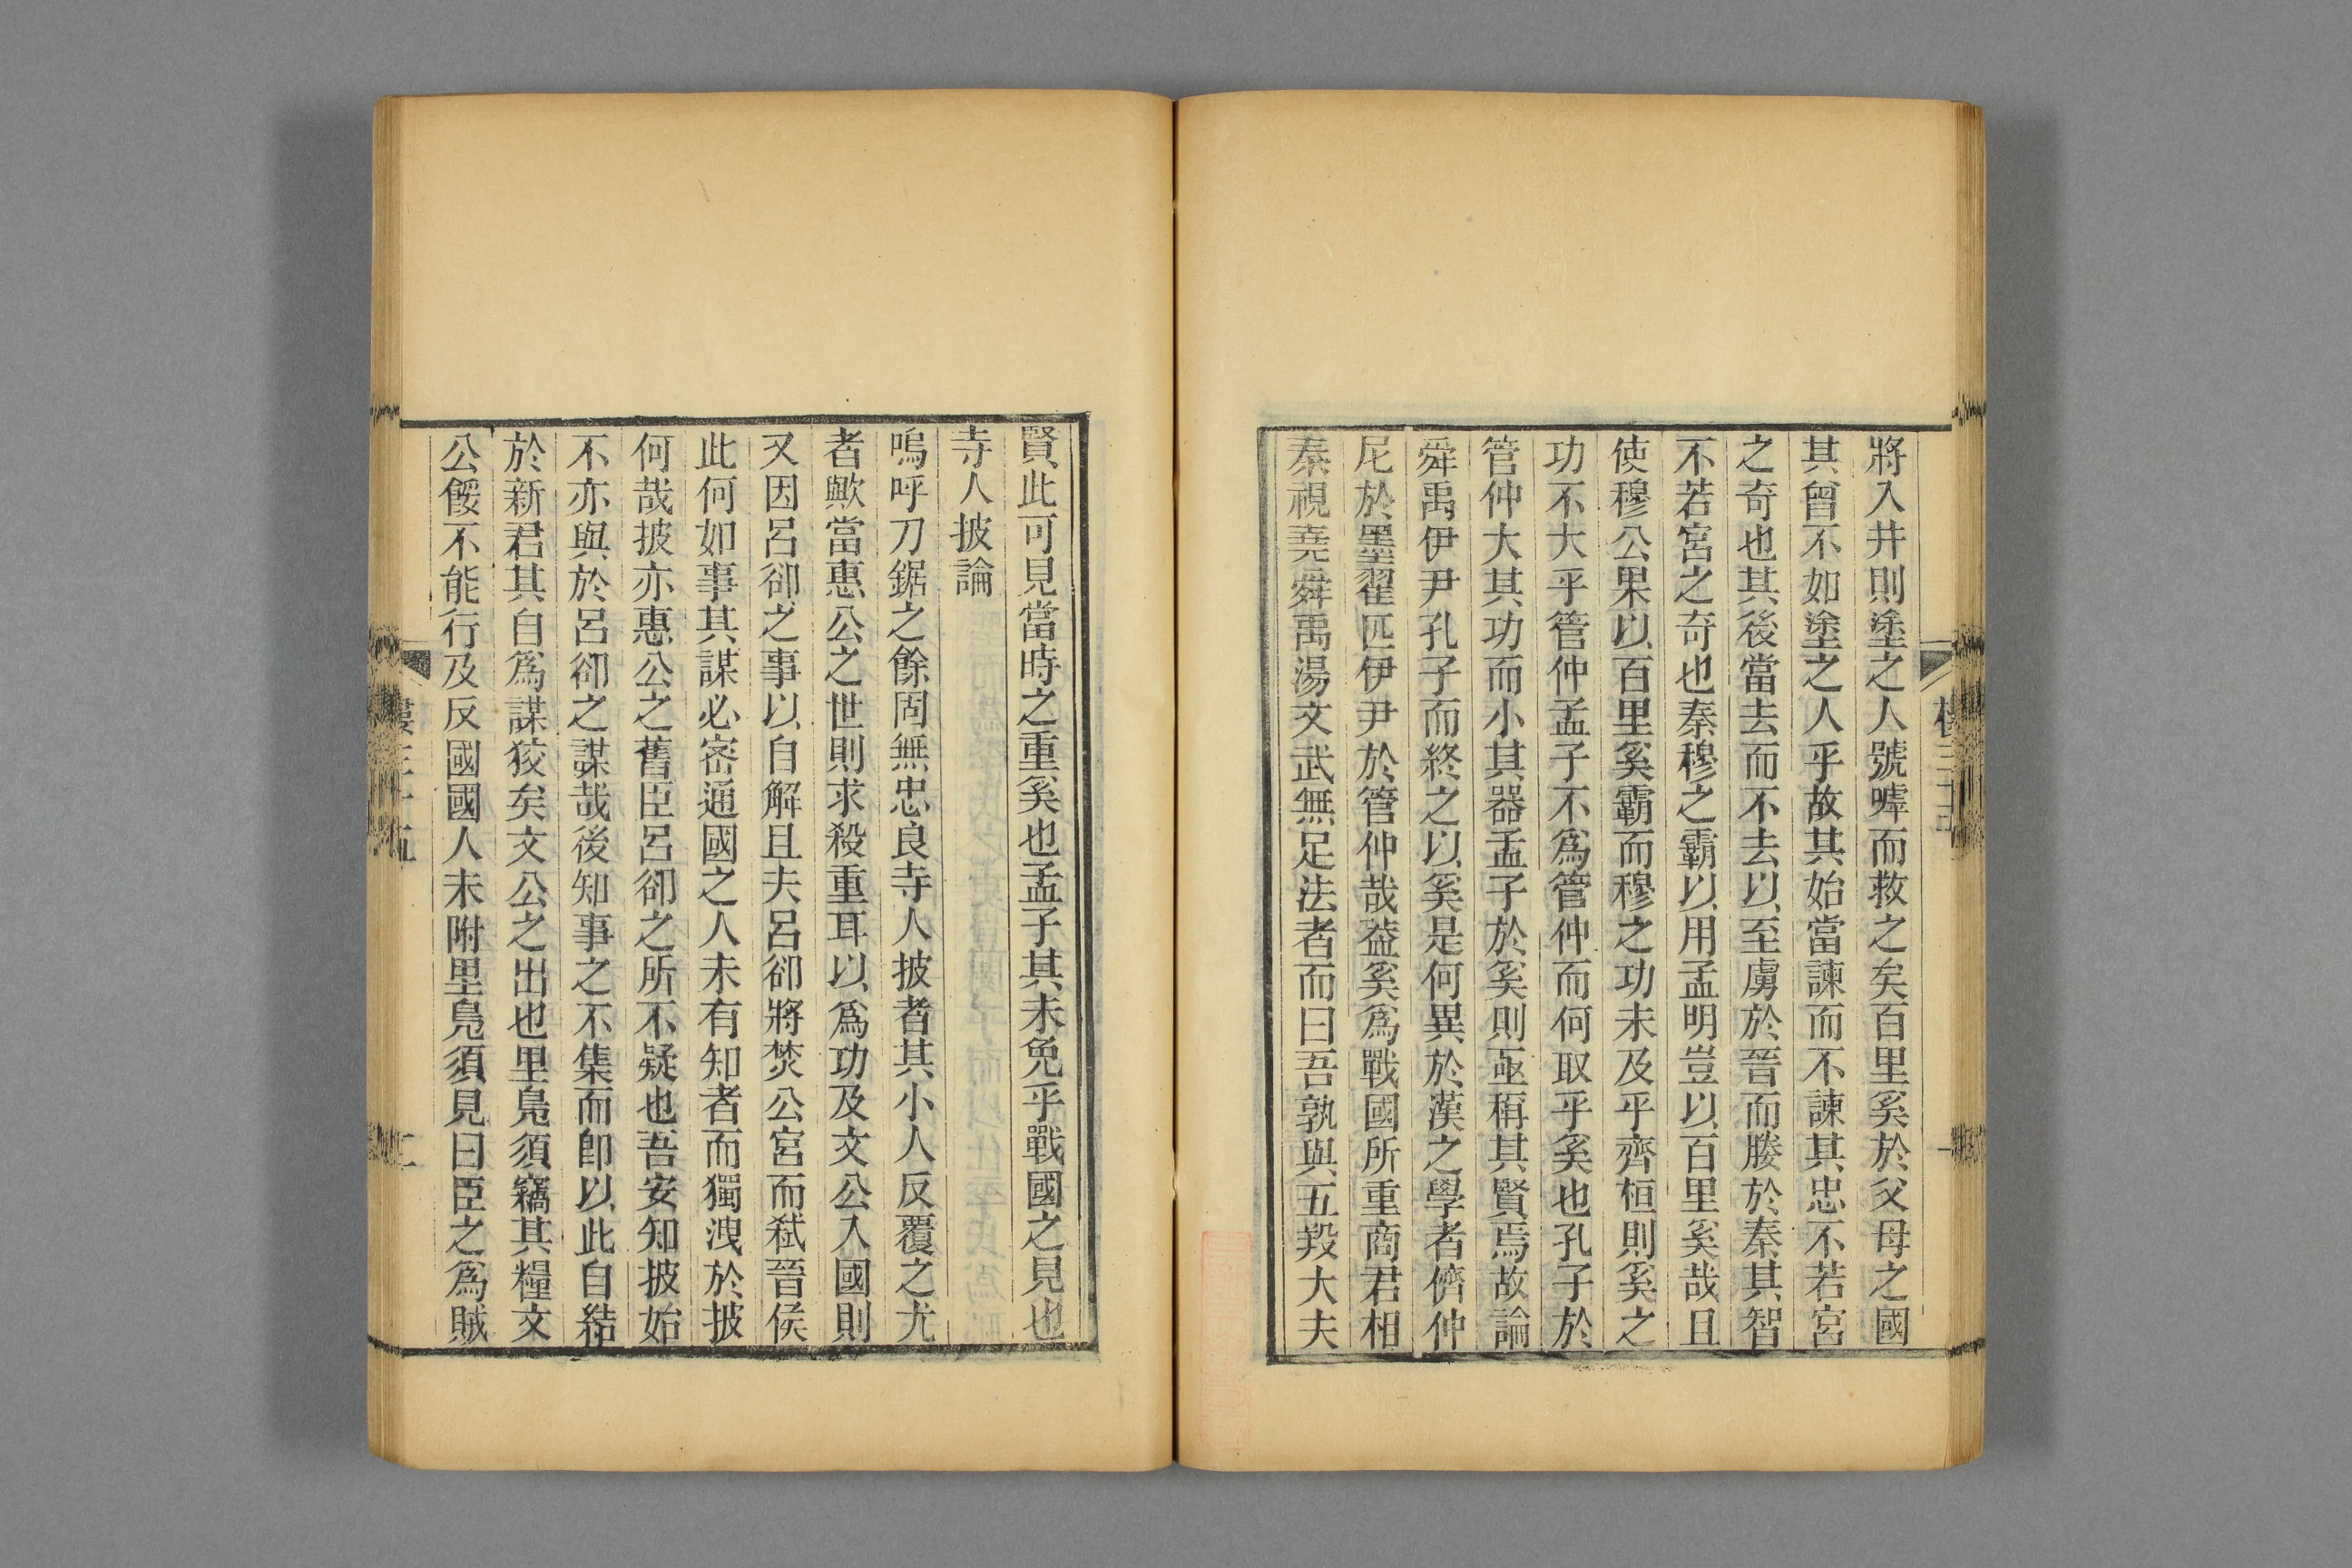 將入井則塗之人號嘑而救之矣百里奚於父母之國
其曾不如塗之人乎故其始當諫而不諫其忠不若宮
之奇也其後當去而不去以至虜於晉而媵於秦其智
不若宮之奇也秦穆之霸以用孟明豈以百里奚哉且
使穆公果以百里奚霸而穆之功未及乎齊桓則奚之
功不大乎管仲孟子不爲管仲而何取乎奚也孔子於
管仲大其功而小其器孟子於奚則亟稱其賢焉故論
舜禹伊尹孔子而終之以奚是何異於漢之學者儕仲
尼於墨翟匹伊尹於管仲哉蓋奚爲戰國所重商君相
秦視堯舜禹湯文武無足法者而曰吾孰與五羖大夫
賢此可見當時之重奚也孟子其未免乎戰國之見也
寺人披論
嗚呼刀鋸之餘固無忠良寺人披者其小人反覆之尤
者歟當惠公之世則求殺重耳以爲功及文公入國則
又因呂郤之事以自解且夫呂郤將焚公宮而弑晉侯
此何如事其謀必密通國之人未有知者而獨洩於披
何哉披亦惠公之舊臣呂郤之所不疑也吾安知披始
不亦與於呂郤之謀哉後知事之不集而卽以此自結
於新君其自爲謀狡矣文公之出也里鳧須竊其糧文
公餒不能行及反國國人未附里鳧須見曰臣之爲賊
三十五
二